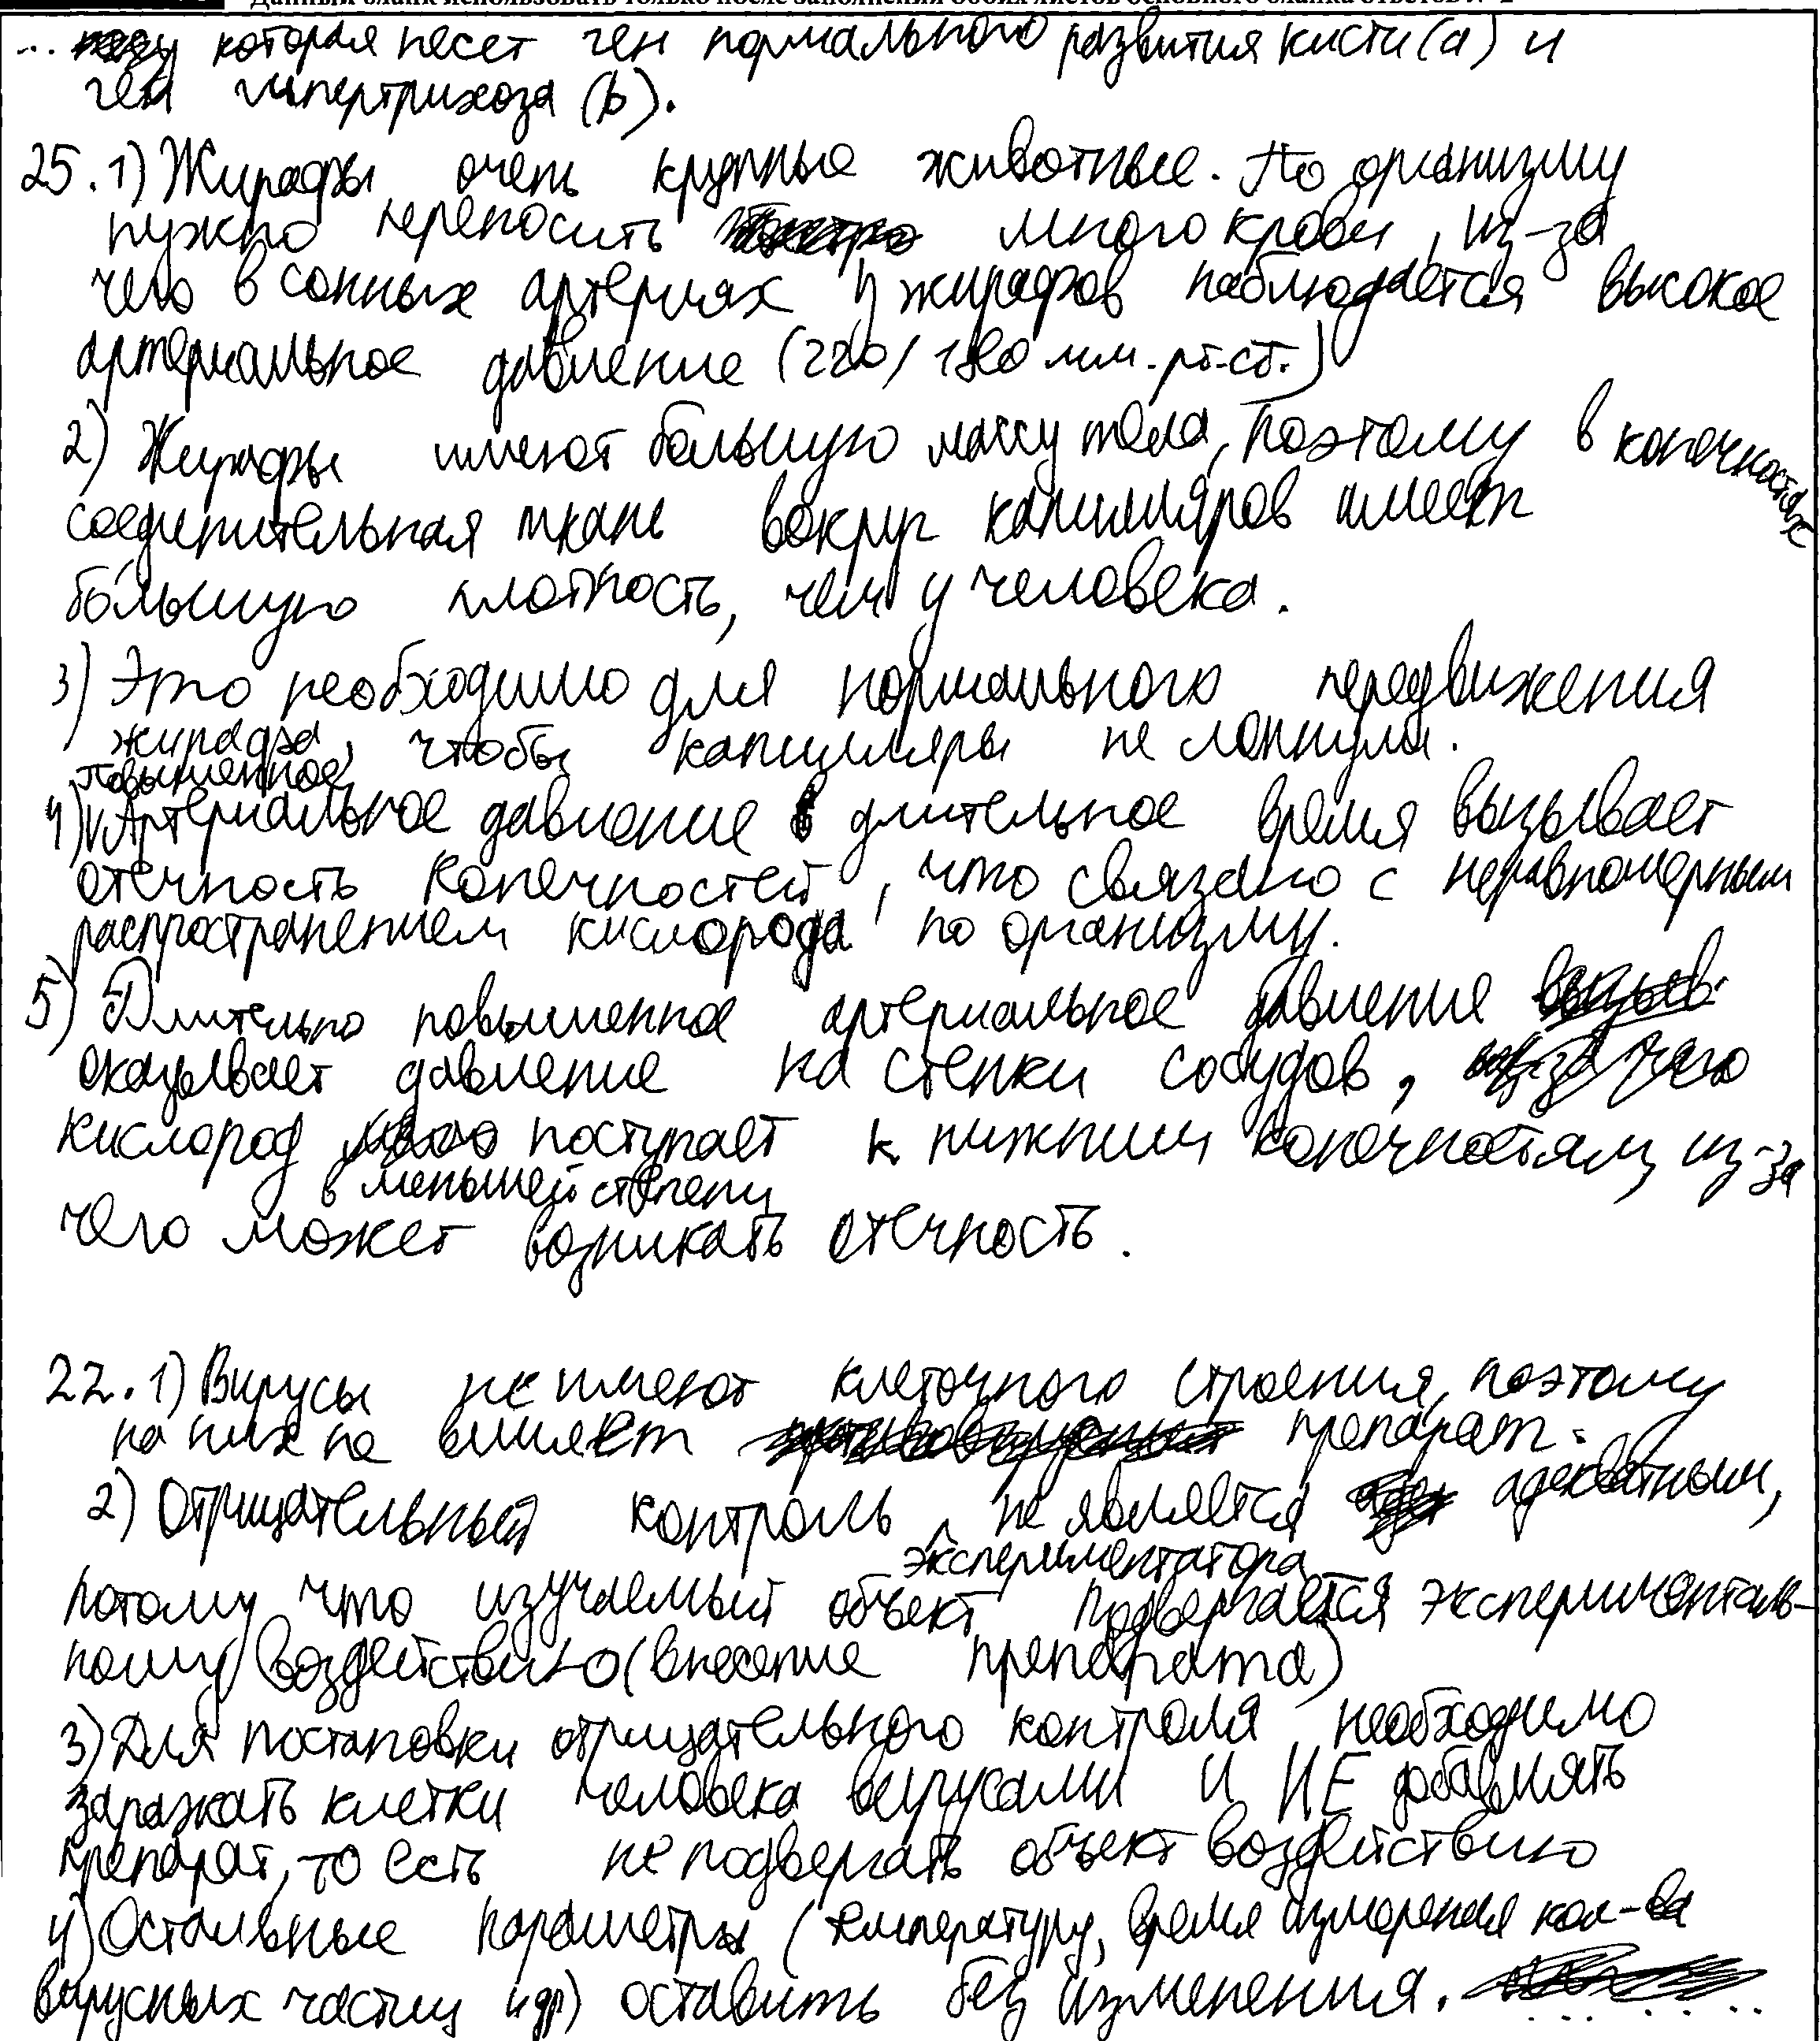 Данный бланк использовать только после заполнения обоих листов основного бланка ответов № 2
... которая несет ген нормального развития кисти (a) и
ген гипертрихоза (b).
25. 1) Жирафы очень крупные животные. По организму
нужно переносить много крови, из-за
чего в сонных артериях у жирафов наблюдается высокое
артериальное давление (220/180 мм. рт. ст.)
2) Жирафы имеют большую массу тела, поэтому в конечностях
соединительная ткань вокруг капилляров имеет
большую плотность, чем у человека.
3) Это необходимо для нормального передвижения
жирафа, чтобы капилляры не лопнули.
повышенное
4) Артериальное давление длительное время вызывает
отечность конечностей, что связано с неравномерным
распространением кислорода по организму.
5) Длительно повышенное артериальное давление
оказывает давление на стенки сосудов,
кислород поступает к нижним конечностям, из-за
в меньшей степени
чего может возникать отечность.
22. 1) Вирусы не имеют клеточного строения, поэтому
на них не влияет препарат.
2) Отрицательный контроль не является адекватным,
экспериментатора
потому что изучаемый объект подвергается эксперименталь-
ному воздействию (внесение препарата)
3) Для постановки отрицательного контроля необходимо
заражать клетки человека вирусами и НЕ добавлять
препарат, то есть не подвергать объект воздействию
4) Остальные параметры (температуру, время измерения кол-ва
вирусных частиц и др) оставить без изменения.